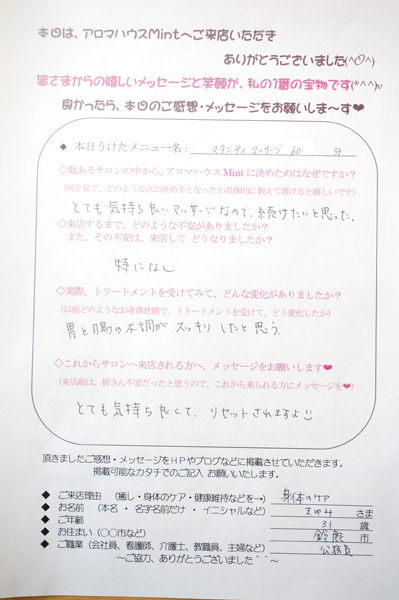 本日は、アロマハウスMintへご来店いただき
ありがとうございました(^O^)
皆さまからの嬉しいメッセージと笑顔が、私の1番の宝物です(*^^*)
良かったら、本日のご感想・メッセージをお願いしま～す❤
◆ 本日うけたメニュー名： マタニティ マッサージ 60 分
◇数あるサロンの中から、アロマハウス Mint に決めたのはなぜですか？
(何を見て、どのような点が決め手となったか具体的に教えて頂けると嬉しいです)
とても気持ち良いマッサージなので、続けたいと思った。
◇来店するまで、どのような不安がありましたか？
また、その不安は、来店して どうなりましたか？
特になし
◇実際、トリートメントを受けてみて、どんな変化がありましたか？
(以前どのようなお身体状態で、トリートメントを受けて、どう変化したか)
胃と腸の不調が スッキリ したと思う。
◇これからサロンへ来店される方へ、メッセージをお願いします❤
(来店前は、皆さん不安だったと思うので、これから来られる方にメッセージを❤)
とても気持ち良くて、リセットされますよ
頂きましたご感想・メッセージをHPやブログなどに掲載させていただきます。
掲載可能なカタチでのご記入 お願いいたします。
◆ ご来店理由 (癒し・身体のケア・健康維持などを→) 身体のケア
◆ お名前 (本名 ・ 名字名前だけ ・ イニシャルなど) さま
◆ ご年齢 31 歳
◆ お住まい (〇〇市など) 鈴鹿 市
◆ ご職業 (会社員、看護師、介護士、教職員、主婦など) 公務員
～ご協力、ありがとうございました＾＾～